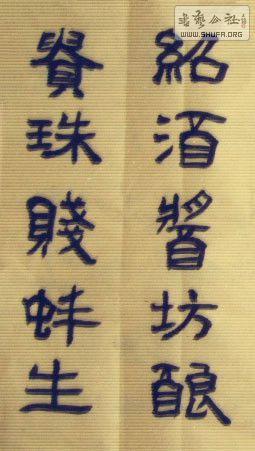 紹酒醬坊酿
貴珠賤蚌生
書藝公社
WWW.SHUFA.ORG